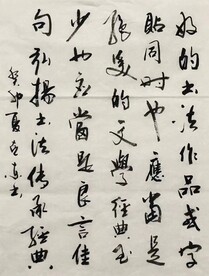 好的书法作品或字
贴同时也应当是
张美的文学经典至
少也应当是良言佳
句弘扬书法传承经典
癸卯夏